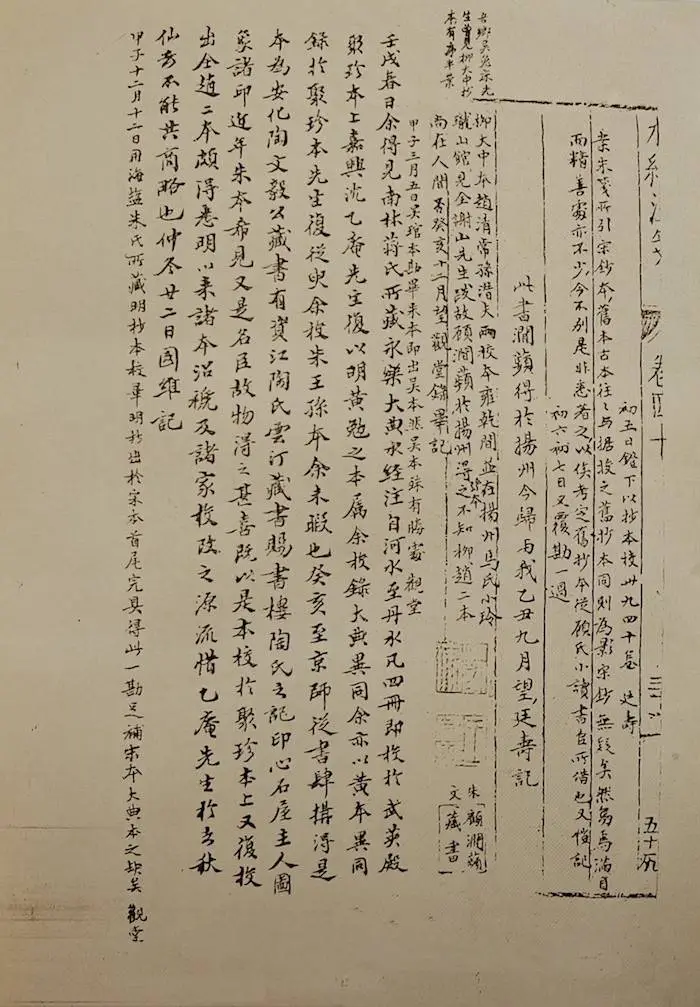 水經注 卷四十
五十九
初五日鐙下以抄本校卅九四十卷 廷壽
業朱箋所引宗鈔本舊本古本往々与據校之舊抄本同則為影宗鈔無疑矣然烏焉滿目
而精善處亦不少今不别是非悉着之以俟考定舊抄本從顧氏小讀書堆所借也又愷記
初六初七日又覆勘一過
此書澗蘋得於揚州今歸与我乙丑九月望廷壽記
柳大中本趙清常孫潛夫兩校本雍乾間並在揚州馬氏小玲
瓏山館見全謝山先生跋故顧澗蘋於揚州得之不知柳趙二本
孫本
尚在人間否癸亥十二月望觀堂錄畢記
甲子三月五日吴琯本勘畢朱本即出吴本非吴本殊有勝處 觀堂
吾鄉吴兔牀先
生曾見柳大中抄
本有序半葉
朱文
顧澗蘋
藏書
壬戌春日余得見南林蔣氏所藏永樂大典水經注自河水至丹水凡四冊即校於武英殿
聚珍本上嘉興沈乙庵先生復以明黄勉之本属余校錄大典異同余亦以黄本異同
錄於聚珍本先生復從臾余校朱王孫本余未暇也癸亥至京師從書肆搆得是
本為安化陶文毅公藏書有資江陶氏雲汀藏書賜書樓陶氏之記印心石屋主人圖
篆諸印近年朱本希見又是名臣故物得之甚喜既以是本校於聚珍本上又復校
出全趙二本頗得悉明以来諸本沿襲及諸家校改之源流惜乙庵先生於去秋
仙去不能共商略也仲冬廿二日國維記
甲子十二月十二日用海鹽朱氏所藏明抄本校畢明抄出於宋本首尾完具得此一勘足補宋本大典本之缺矣 觀堂